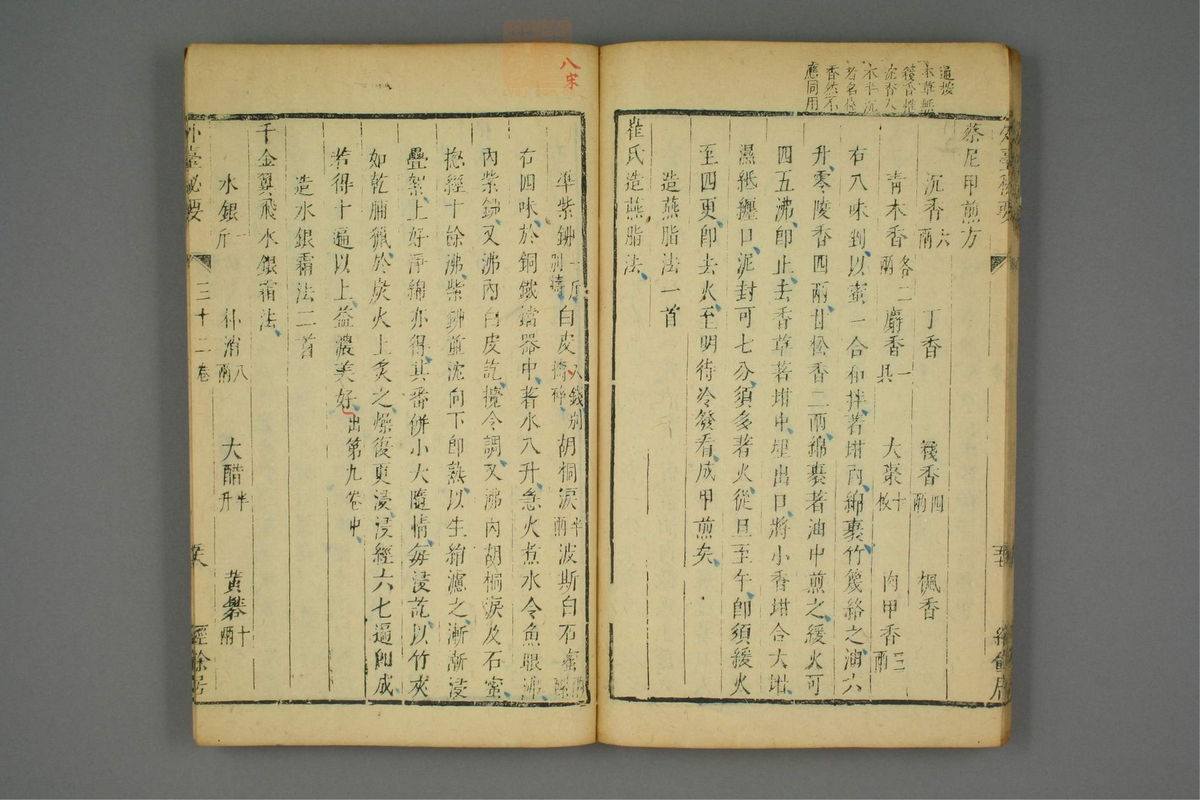 通按
本草無
篯香惟
沈香入
水半沉
者名篯
香然不
應同用
蔡尼甲煎方
沉香六兩 丁香 篯香四兩 楓香
青木香各二兩 麝香一具 大棗十枚 肉甲香三兩
右八味剉以蜜一合和拌著坩內綿裹竹篾絡之油六
升零陵香四兩甘松香二兩綿裹著油中煎之緩火可
四五沸即止去香草著坩中埋出口將小香坩合大坩
濕紙纏口泥封可七分須多著火從旦至午即須緩火
至四更即去火至明待冷發看成甲煎矣
造燕脂法一首
崔氏造燕脂法
準紫鉚一斤別擣 白皮八錢別擣碎 胡桐淚半兩 波斯白石蜜兩磥
右四味於銅鐵鐺器中著水八升急火煮水令魚眼沸
內紫鉚又沸內白皮訖攪令調又沸內胡桐淚及石蜜
總經十餘沸紫鉚並沈向下即熟以生絹濾之漸漸浸
疊絮上好淨綿亦得其番併小大隨情每浸訖以竹夾
如乾脯獵於炭火上炙之燥復更浸浸經六七遍即成
若得十遍以上益濃美好出第九卷中
造水銀霜法二首
千金翼飛水銀霜法
水銀一斤 朴消八兩 大醋半升 黃礬十兩
外臺秘要 三十二卷 經餘居
八宋